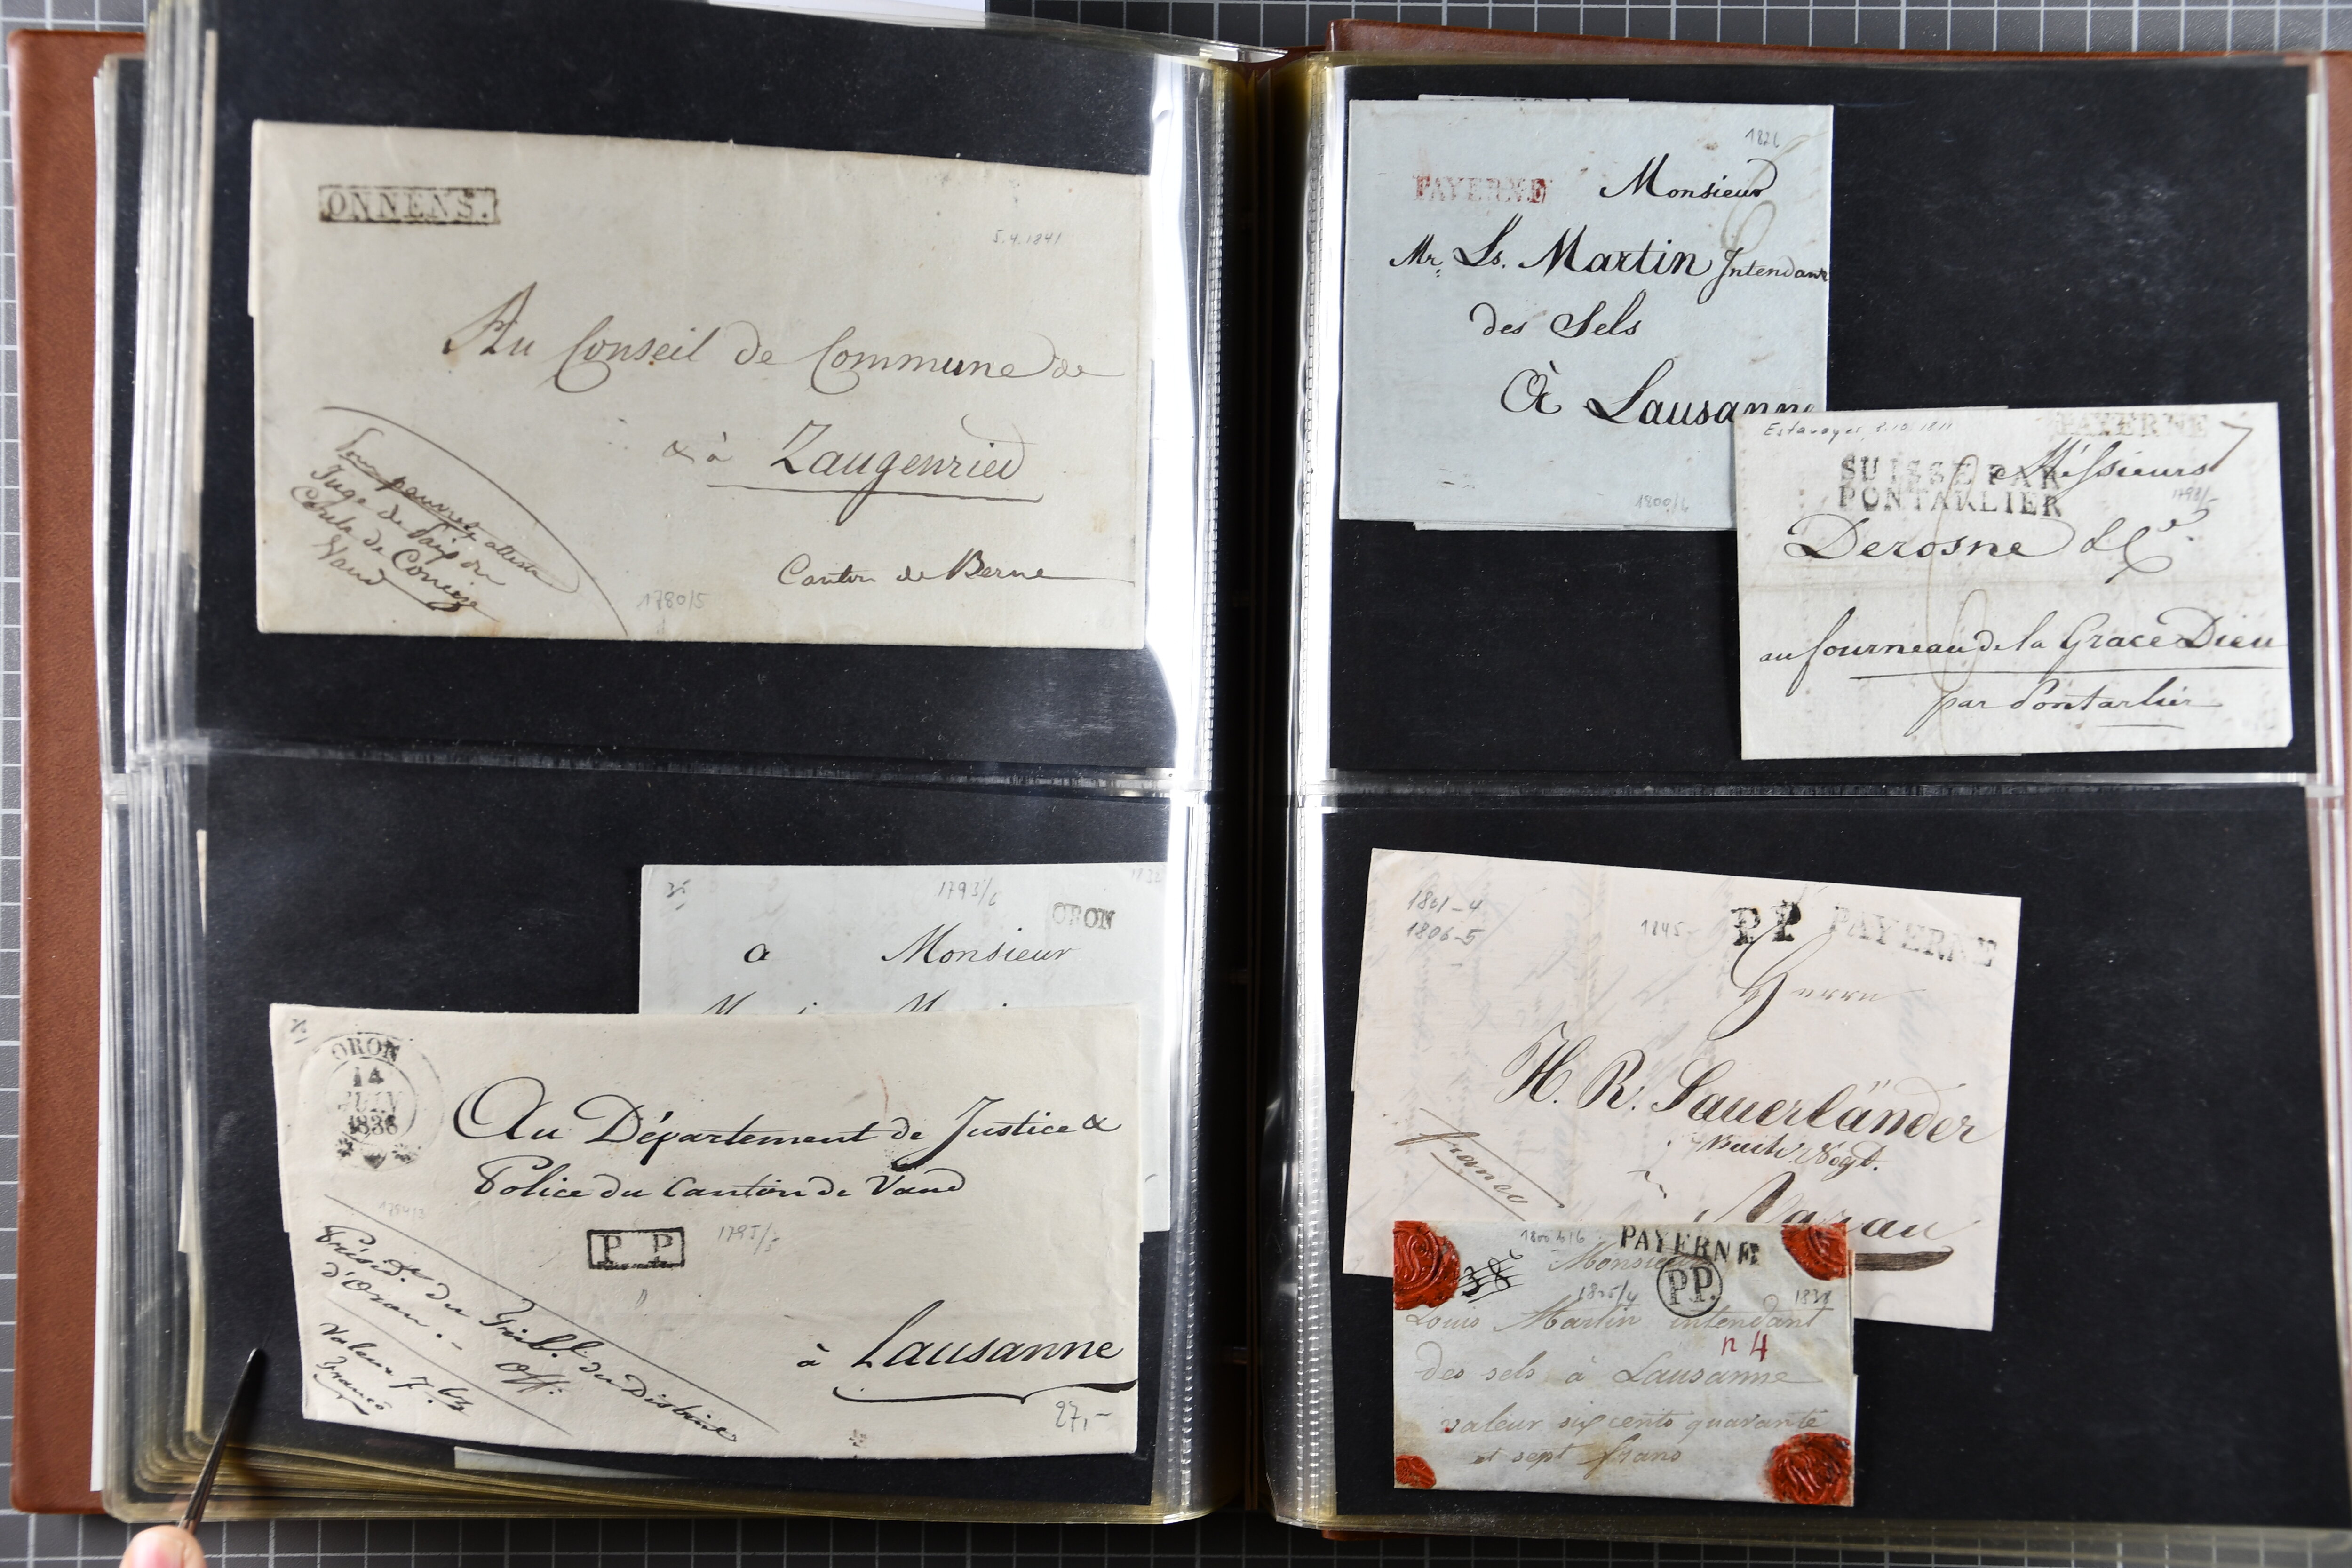 ONNENS.
5.4.1841
Au Conseil de Commune de
& à Zaugenried
Canton de Berne
Juge de Paix du
Vaud
1780/5
1793/6
ORON
a Monsieur
ORON
14
JUIN
1836
Au Département de Justice &
Police du Canton de Vaud
P. P.
1795/5
Présid. du Trib. du District
d'Oron. - Off.
Valeur
Franco
à Lausanne
27,-
1826
PAYERNE Monsieur
Mr. Ls. Martin Intendant
des Sels
À Lausanne
1800/6
PAYERNE
Estavayer
SUISSE PAR
PONTARLIER
Messieurs
Derosne & Ce.
au fourneau de la Grace Dieu
par Pontarlier
1801-4
1806-5
1845
P.P. PAYERNE
Herrn
H. R. Sauerländer
franco
Aarau
PAYERNE
PP.
Monsieur
1838
Louis Martin intendant
n 4
des sels à Lausanne
valeur six cents quarante
et sept francs